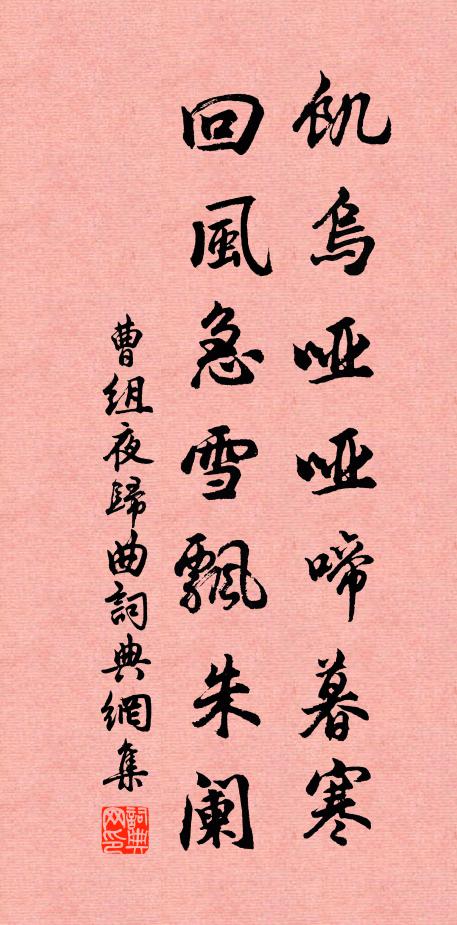 飢烏啞啞啼暮寒
回風急雪飄朱闌
曹組夜歸曲詞典網集
詞典网印